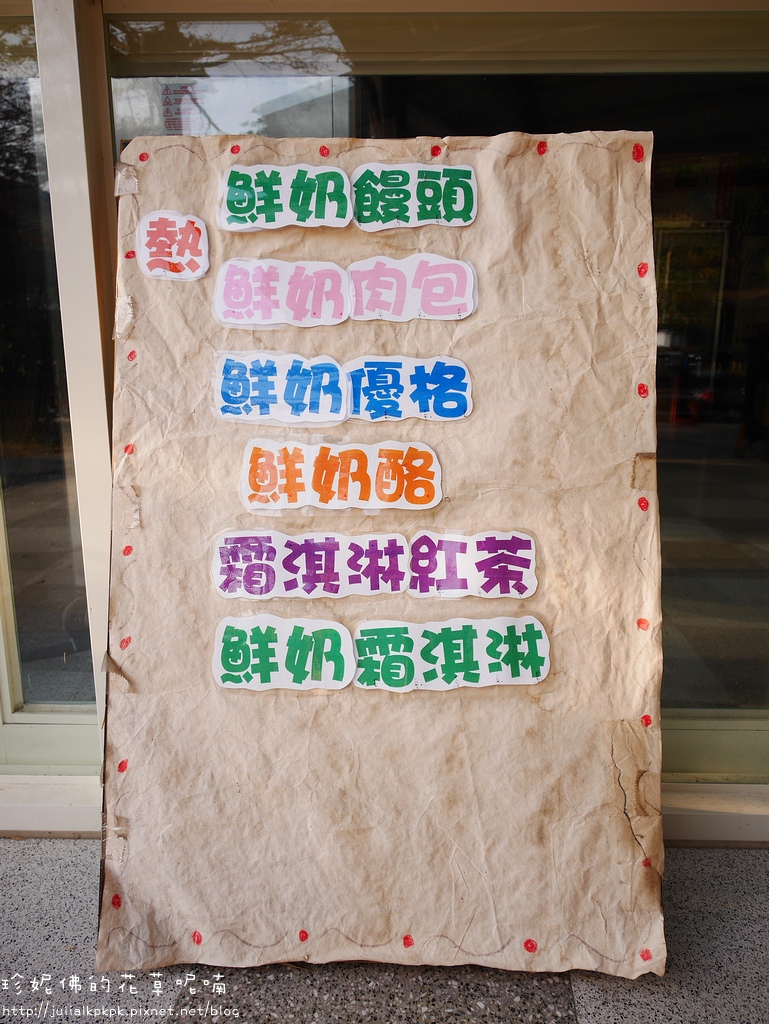 鮮奶饅頭
熱
鮮奶肉包
鮮奶優格
鮮奶酪
霜淇淋紅茶
鮮奶霜淇淋
珍妮佛的花草呢喃
http://julialkpkpk.pixnet.net/blog